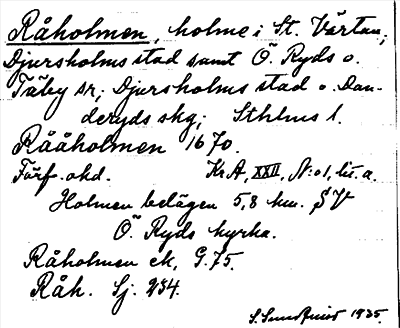 Råholmen, holme i St. Värtan;
Djursholms stad samt Ö. Ryds o.
Täby sr; Djursholms stad o. Dan-
deryds skg; Sthlms l.
Rååholmen 1670.
Förf. okd. Kr A, XXII, N:o 1, lit. a.
Holmen belägen 5,8 km. SV
Ö. Ryds kyrka.
Råholmen ek, G. 75.
Råh. Sj. 234.
S. Sundqvist 1935.